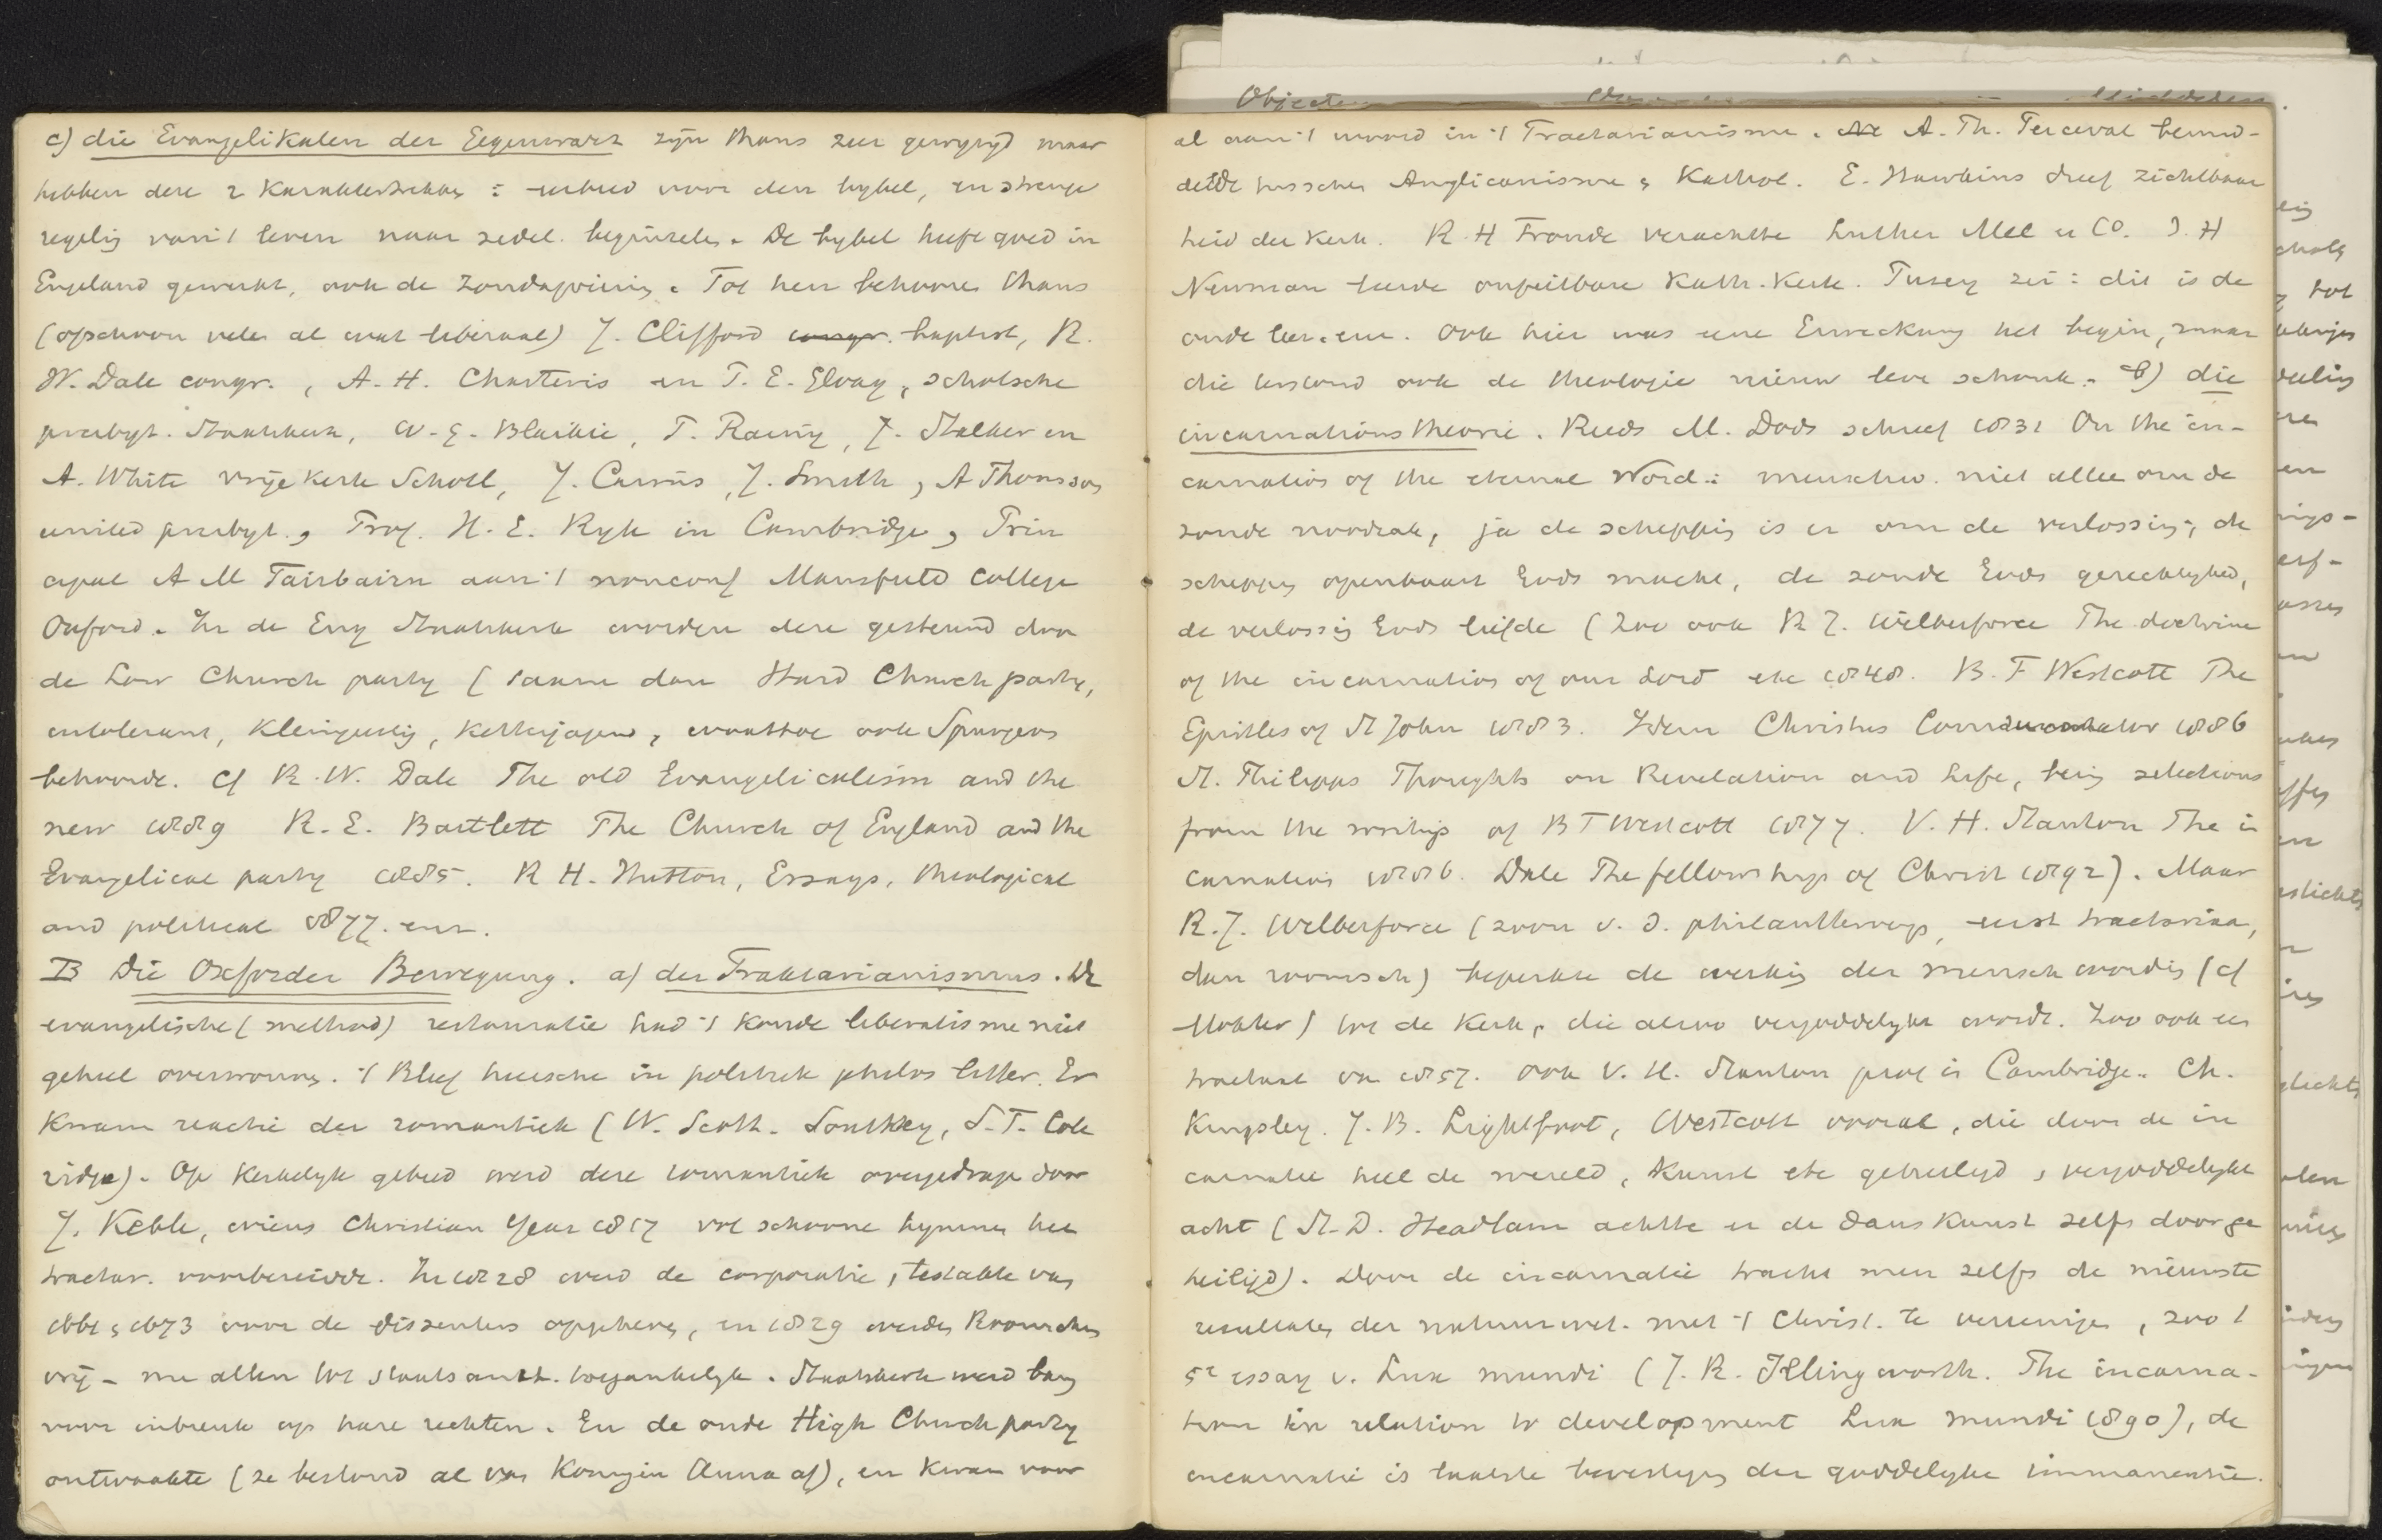 Objecten
c) die Evangelikalen der Gegenwart zijn thans zeer gewijzigd maar
hebben deze 2 karaktertrekken : eerbied voor den bybel, en strenge
regeling van 't leven naar zedel. beginselen. De bybel heeft goed in
Engeland gewerkt, ook de Zondagviering. Tot hen behooren thans
(ofschoon velen al wat liberaal) J. Clifford congr. baptist, R.
W. Dale congr. , A. H. Charteris en T. E. Elvay, schotsche
presbyt. Staatskerk, W. G. Blaikie, R. Rainy, J. Stalker en
A. White vrije kerk Schotl, J. Cairns, J. Smith, A Thomson
united presbyt., Prof. H. E. Ryle in Cambridge, Prin
cipal A M Fairbairn aan 't nonconf Mansfield College
Oxford. In de Eng Staatskerk worden deze gesteund door
de Low Church party ( dan Hard Church party,
intolerant, kleingeestig, ketterjagend, waartoe ook Spurgeon
behoorde. Cf R. W. Dale The old Evangelicalism and the
new 1889 R. E. Bartlett The Church of England and the
Evangelical party 1885. R H. Hutton, Essays, theological
and political 1877. enz.
B Die Oxforder Bewegung. a) der Traktarianismus. De
evangelische (method) restauratie had 't koude liberalisme niet
geheel overwonnen. 't Bleef heerschen in politiek philos litter. Er
kwam reactie der romantiek (W. Scott. Southey, S. T. Cole
ridge). Op kerkelyk gebied werd deze romantiek overgedragen door
J. Keble, wiens Christian Year 1827 vol schoone hymnen het
tractar. voorbereidde. In 1828 werd de corporatie, testakte van
1661, 1673 voor de dissenters opgeheven, en 1829 werden Roomschen
vrij - nu allen tot staatsambt. toegankelyk. Staatskerk werd bang
voor inbreuk op hare rechten. En de oude High Church party
ontwaakte (ze bestond al van Koningin Anna af), en kwam voor
al aan 't woord in 't Tractarianisme. A. Th. Perceval bemid-
delde tusschen Anglicanisme, Kathol. E. Hawkins dreef zichtbaar
heid der kerk. R. H Froude verachtte Luther Mel u Co. J. H
Newman leerde onfeilbare Kath. kerk. Pusey zei : dit is de
oude leer. enz. Ook hier was eene Erweckung het begin, maar
die terstond ook de theologie nieuw leven schonk. b) die
incarnationstheorie. Reeds M. Dods schreef 1831 On the in-
carnation of the eternal Word : menschw. niet alleen om de
zonde noodzak, ja de schepping is er om de verlossing; de
schepping openbaart Gods macht, de zonde Gods gerechtigheid,
de verlossing Gods liefde (Zoo ook R J. Wilberforce The doctrine
of the incarnation of our Lord etc 1848. B. F Westcott The
Epistles of St John 1883. Idem Christus Consummator 1886
St. Philipps Thoughts on Revelation and Life, being selections
from the writings of B F Westcott 1877. V. H. Stanton The in
carnation 1886. Dale The fellowship of Christ 1892). Maar
R. J. Wilberforce (zoon v. d. philanthroop, eerst tractarian,
dan roomsch) beperkte de werking der menschwording (cf
Möhler) tot de kerk, die alzoo vergoddelykt wordt. Zoo ook een
tractaat van 1857. Ook V. H. Stanton prof in Cambridge. Ch.
Kingsley. J. B. Lightfoot, Westcott vooral, die door de in
carnatie heel de wereld, kunst etc geheiligd, vergoddelykt
acht (St. D. Headlam achtte er de danskunst zelfs door ge
heiligd). Door de incarnatie tracht men zelfs de nieuwste
resultaten der natuurwet. met 't Christ. te vereenigen, zoo 't
5e essay v. Lux mundi (J. R. Illingworth. The incarna-
tion in relation to development Lux mundi 1890), de
incarnatie is laatste bevestiging der goddelyke immanentie.